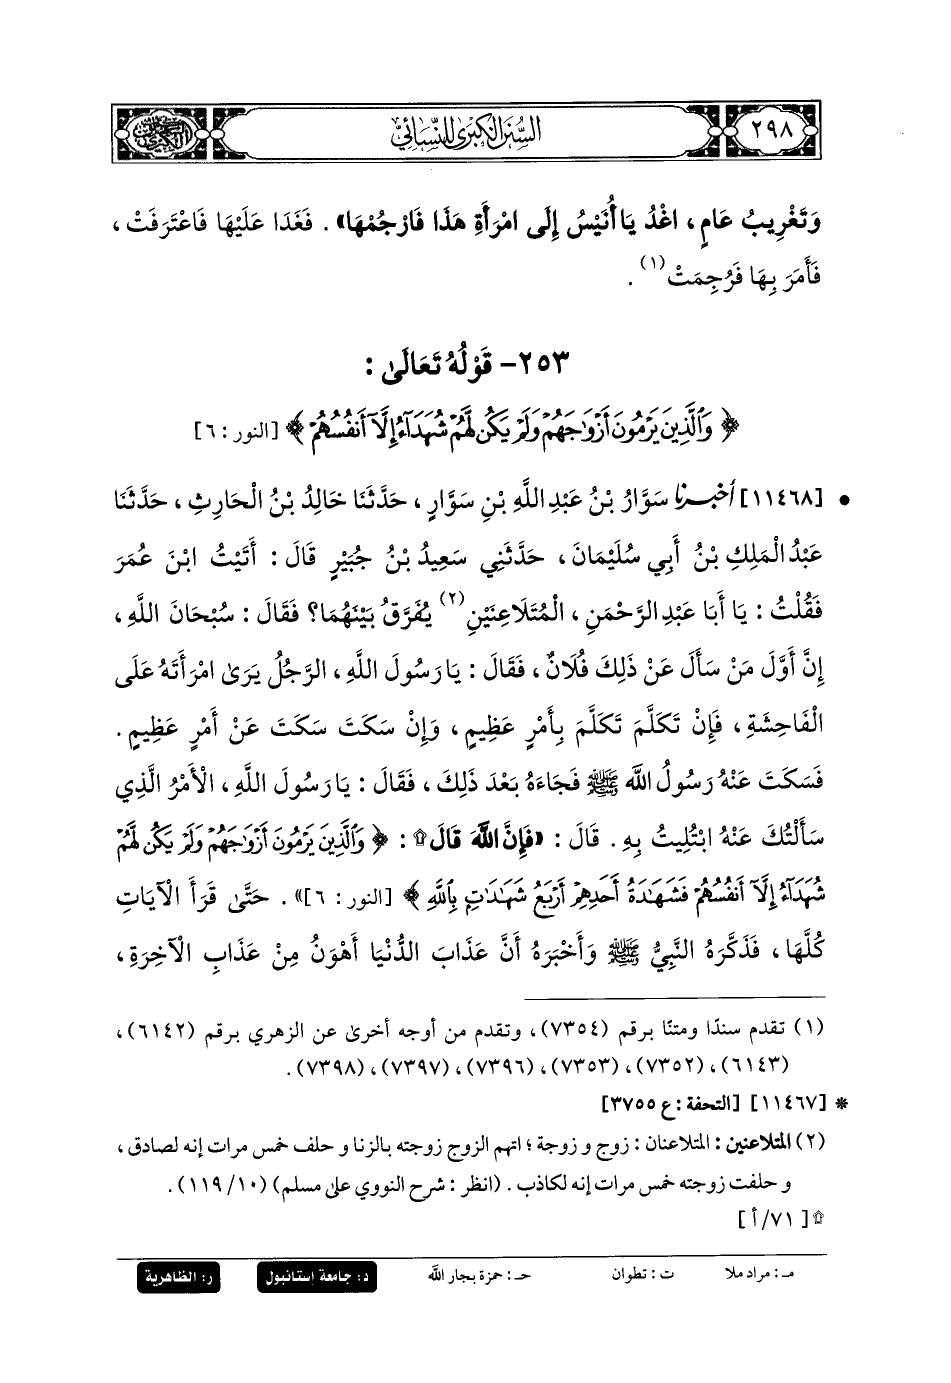 ٢٩٨
السنن الكبرى للنسائي
وَتَغْرِيبُ عَامٍ، اغْدُ يَا أُنَيْسُ إِلَى امْرَأَةِ هَذَا فَارْجُمْهَا». فَغَدَا عَلَيْهَا فَاعْتَرَفَتْ،
فَأَمَرَ بِهَا فَرُجِمَتْ(١).
٢٥٣- قَوْلُهُ تَعَالَىٰ:
﴿وَٱلَّذِينَ يَرْمُونَ أَزْوَٰجَهُمْ وَلَمْ يَكُن لَّهُمْ شُهَدَآءُ إِلَّآ أَنفُسُهُمْ﴾ [النور: ٦]
• [١١٤٦٨] أخبرنا سَوَّارُ بْنُ عَبْدِ اللَّهِ بْنِ سَوَّارٍ، حَدَّثَنَا خَالِدُ بْنُ الْحَارِثِ، حَدَّثَنَا
عَبْدُ الْمَلِكِ بْنُ أَبِي سُلَيْمَانَ، حَدَّثَنِي سَعِيدُ بْنُ جُبَيْرٍ قَالَ: أَتَيْتُ ابْنَ عُمَرَ
فَقُلْتُ: يَا أَبَا عَبْدِ الرَّحْمَنِ، الْمُتَلَاعِنَيْنِ(٢) يُفَرَّقُ بَيْنَهُمَا؟ فَقَالَ: سُبْحَانَ اللَّهِ،
إِنَّ أَوَّلَ مَنْ سَأَلَ عَنْ ذَلِكَ فُلَانٌ، فَقَالَ: يَا رَسُولَ اللَّهِ، الرَّجُلُ يَرَىٰ امْرَأَتَهُ عَلَى
الْفَاحِشَةِ، فَإِنْ تَكَلَّمَ تَكَلَّمَ بِأَمْرٍ عَظِيمٍ، وَإِنْ سَكَتَ سَكَتَ عَنْ أَمْرٍ عَظِيمٍ.
فَسَكَتَ عَنْهُ رَسُولُ اللَّهِ ﷺ فَجَاءَهُ بَعْدَ ذَلِكَ، فَقَالَ: يَا رَسُولَ اللَّهِ، الْأَمْرُ الَّذِي
سَأَلْتُكَ عَنْهُ ابْتُلِيتُ بِهِ. قَالَ: «فَإِنَّ اللَّهَ قَالَ۩: ﴿وَٱلَّذِينَ يَرْمُونَ أَزْوَٰجَهُمْ وَلَمْ يَكُن لَّهُمْ
شُهَدَآءُ إِلَّآ أَنفُسُهُمْ فَشَهَٰدَةُ أَحَدِهِمْ أَرْبَعُ شَهَٰدَٰتٍ بِٱللَّهِ﴾ [النور: ٦]». حَتَّىٰ قَرَأَ الْآيَاتِ
كُلَّهَا، فَذَكَّرَهُ النَّبِيُّ ﷺ وَأَخْبَرَهُ أَنَّ عَذَابَ الدُّنْيَا أَهْوَنُ مِنْ عَذَابِ الْآخِرَةِ،
(١) تقدم سندًا ومتنًا برقم (٧٣٥٤)، وتقدم من أوجه أخرىٰ عن الزهري برقم (٦١٤٢)،
(٦١٤٣)، (٧٣٥٢)، (٧٣٥٣)، (٧٣٩٦)، (٧٣٩٧)، (٧٣٩٨).
* [١١٤٦٧] [التحفة: ع ٣٧٥٥]
(٢) المتلاعنين: المتلاعنان: زوج و زوجة؛ اتهم الزوج زوجته بالزنا و حلف خمس مرات إنه لصادق،
و حلفت زوجته خمس مرات إنه لكاذب. (انظر: شرح النووي على مسلم) (١٠/ ١١٩).
۩ [٧١/ أ]
مـ: مراد ملا ت: تطوان حـ: حمزة بجار اللَّه د: جامعة استانبول ر: الظاهرية